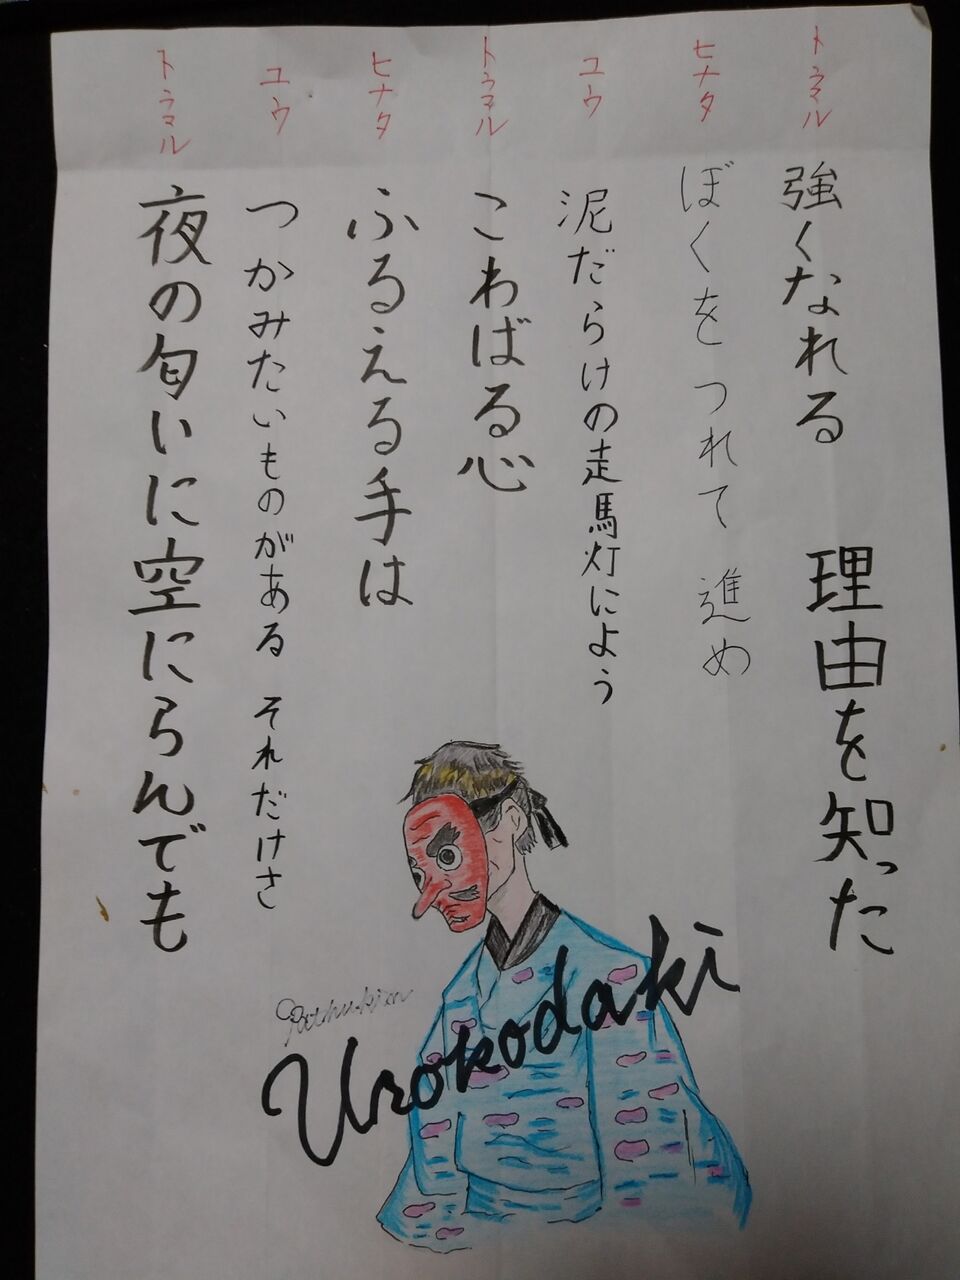 トラマル
強くなれる 理由を知った
ヒナタ
ぼくをつれて 進め
ユウ
泥だらけの走馬灯によう
トラマル
こわばる心
ヒナタ
ふるえる手は
ユウ
つかみたいものがある それだけさ
トラマル
夜の匂いに空にらんでも
Urokodaki